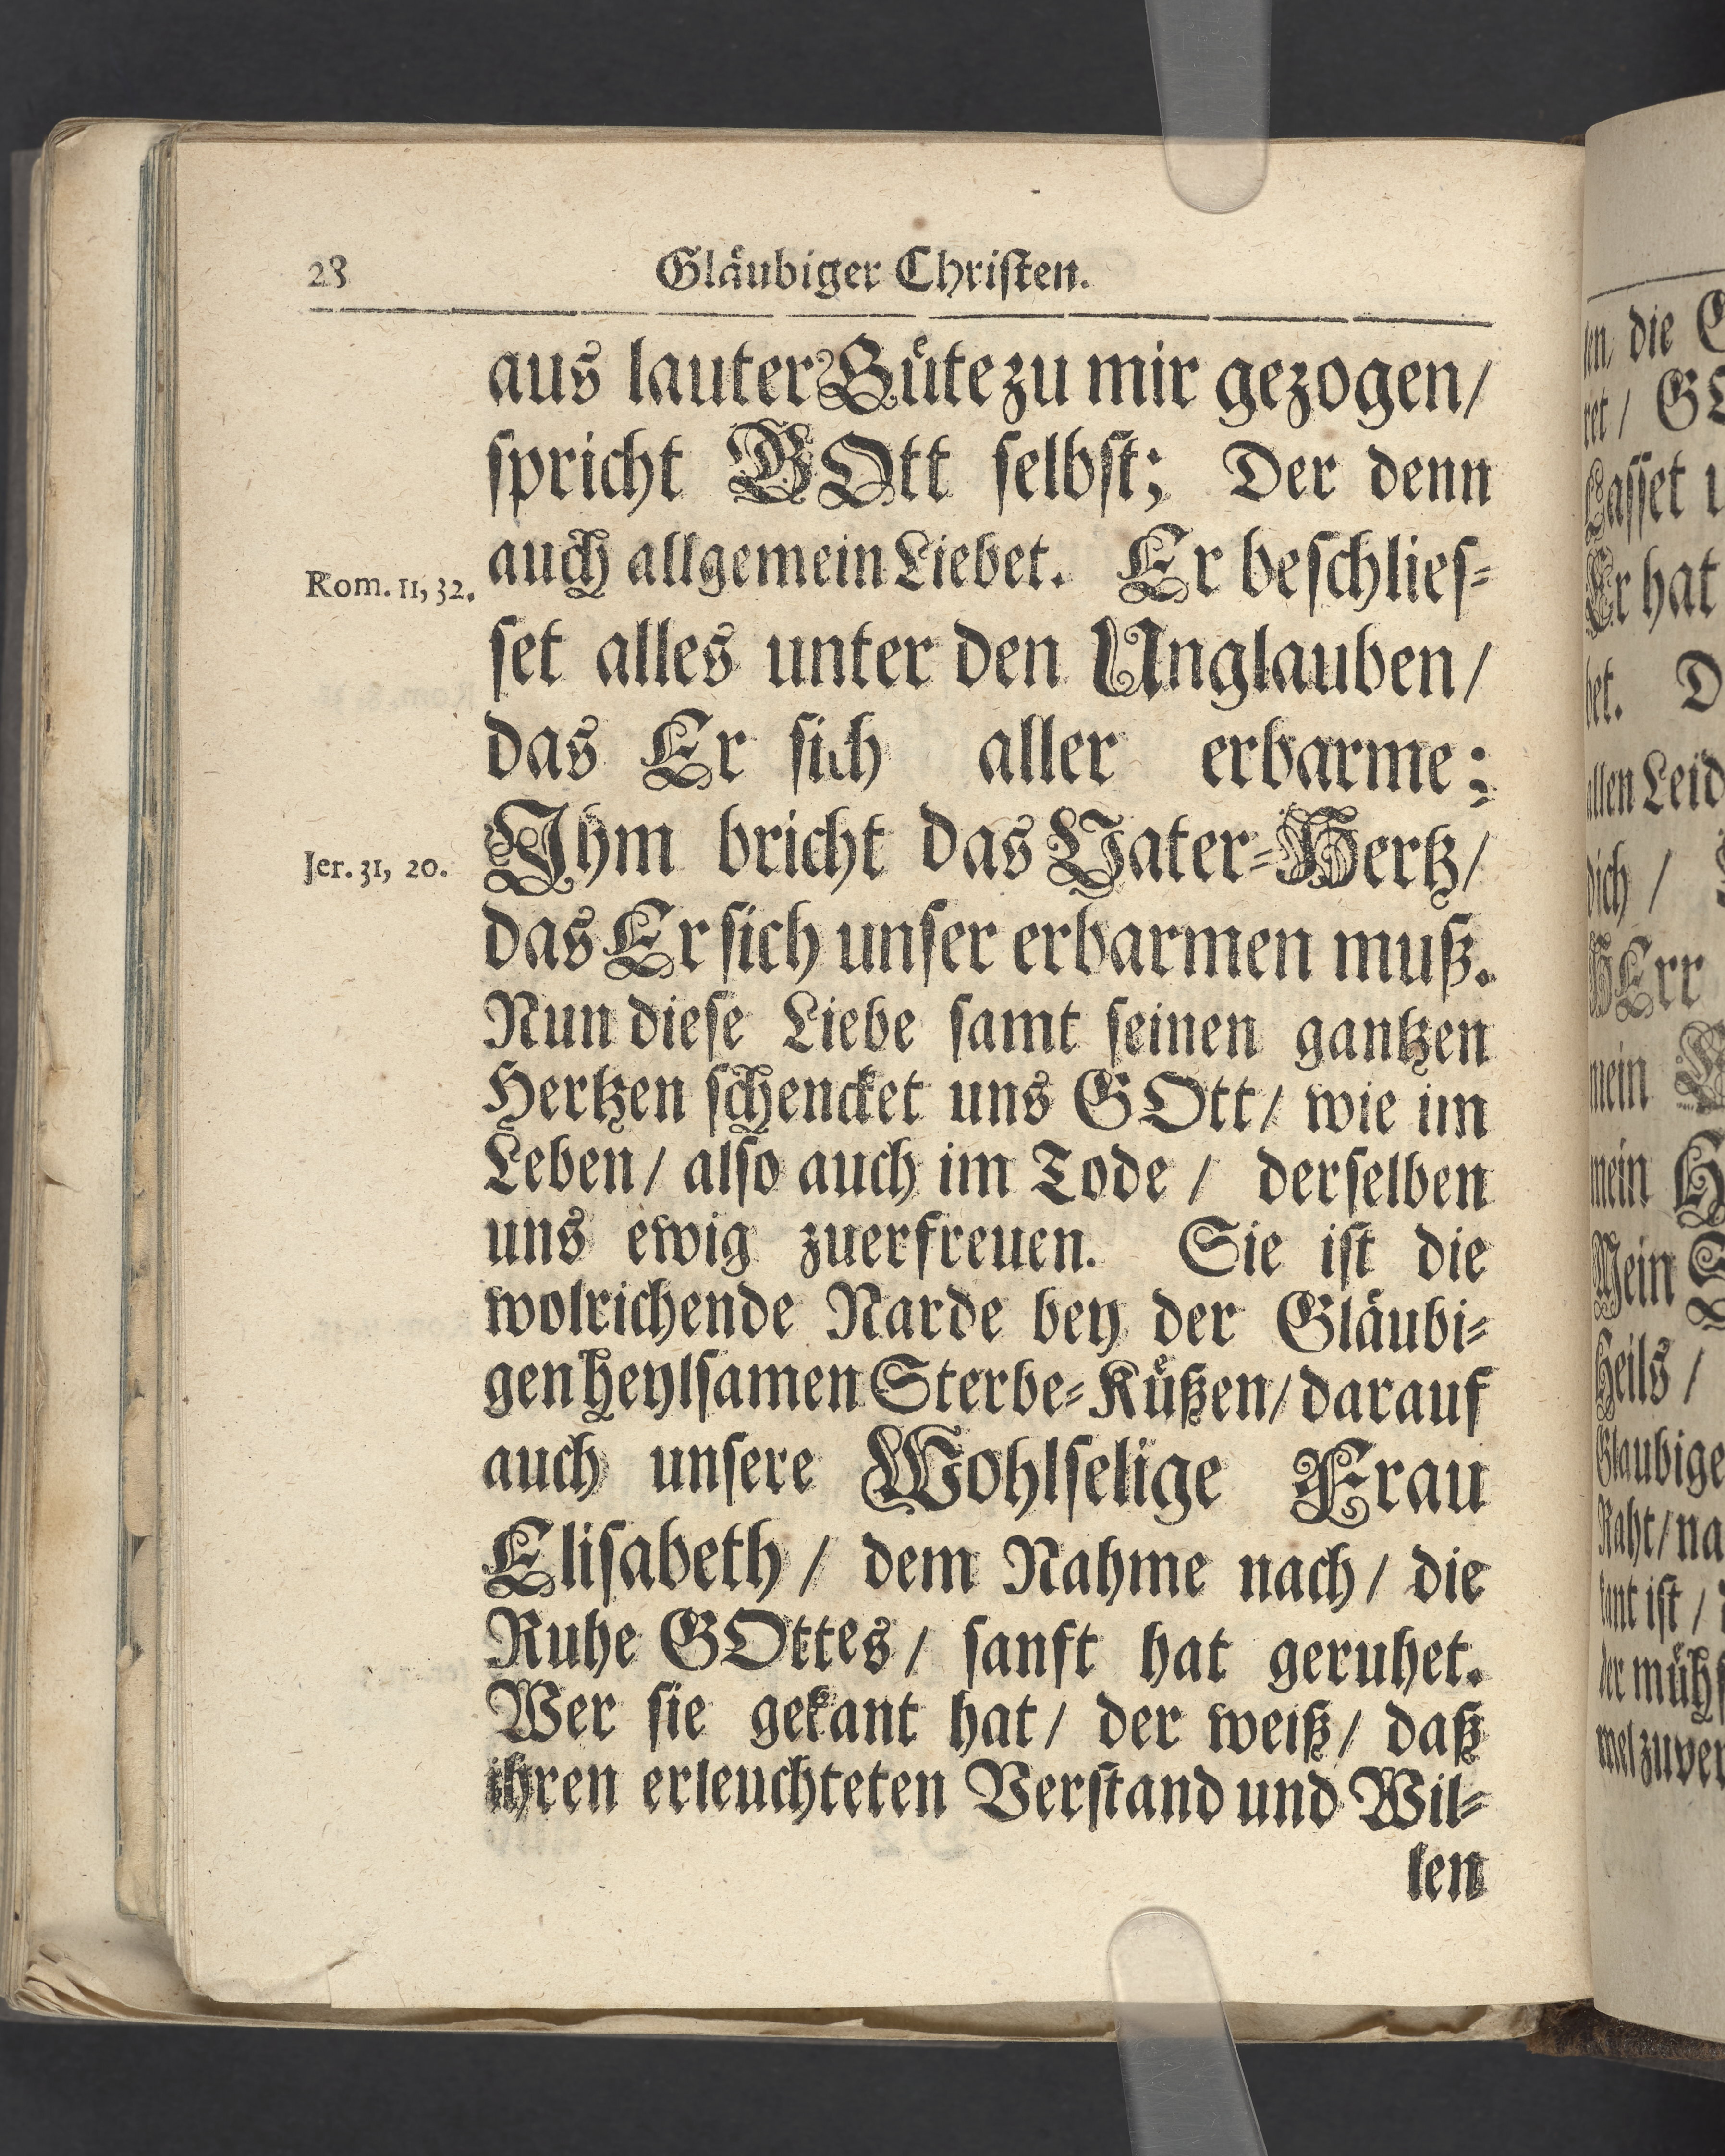 28
Gläubiger Christen.
aus lauter Güte zu mir gezogen/
spricht GOtt selbst; Der denn
auch allgemein Liebet. Er beschlies-
Rom. 11, 32.
set alles unter den Unglauben/
das Er sich aller erbarme:
Ihm bricht das Vater-Hertz/
Jer. 31, 20.
das Er sich unser erbarmen muß.
Nun diese Liebe samt seinen gantzen
Hertzen schencket uns GOtt/ wie im
Leben/ also auch im Tode/ derselben
uns ewig zuerfreuen. Sie ist die
wolrichende Narde bey der Gläubi-
gen heylsamen Sterbe-Küßen/ darauf
auch unsere Wohlselige Frau
Elisabeth/ dem Nahme nach/ die
Ruhe GOttes/ sanft hat geruhet.
Wer sie gekant hat/ der weiß/ daß
ihren erleuchteten Verstand und Wil-
len
die
Lasset
Er hat
allen Leid
HErr
mein
mein
Mein
Heils/
Raht/ na
ist/